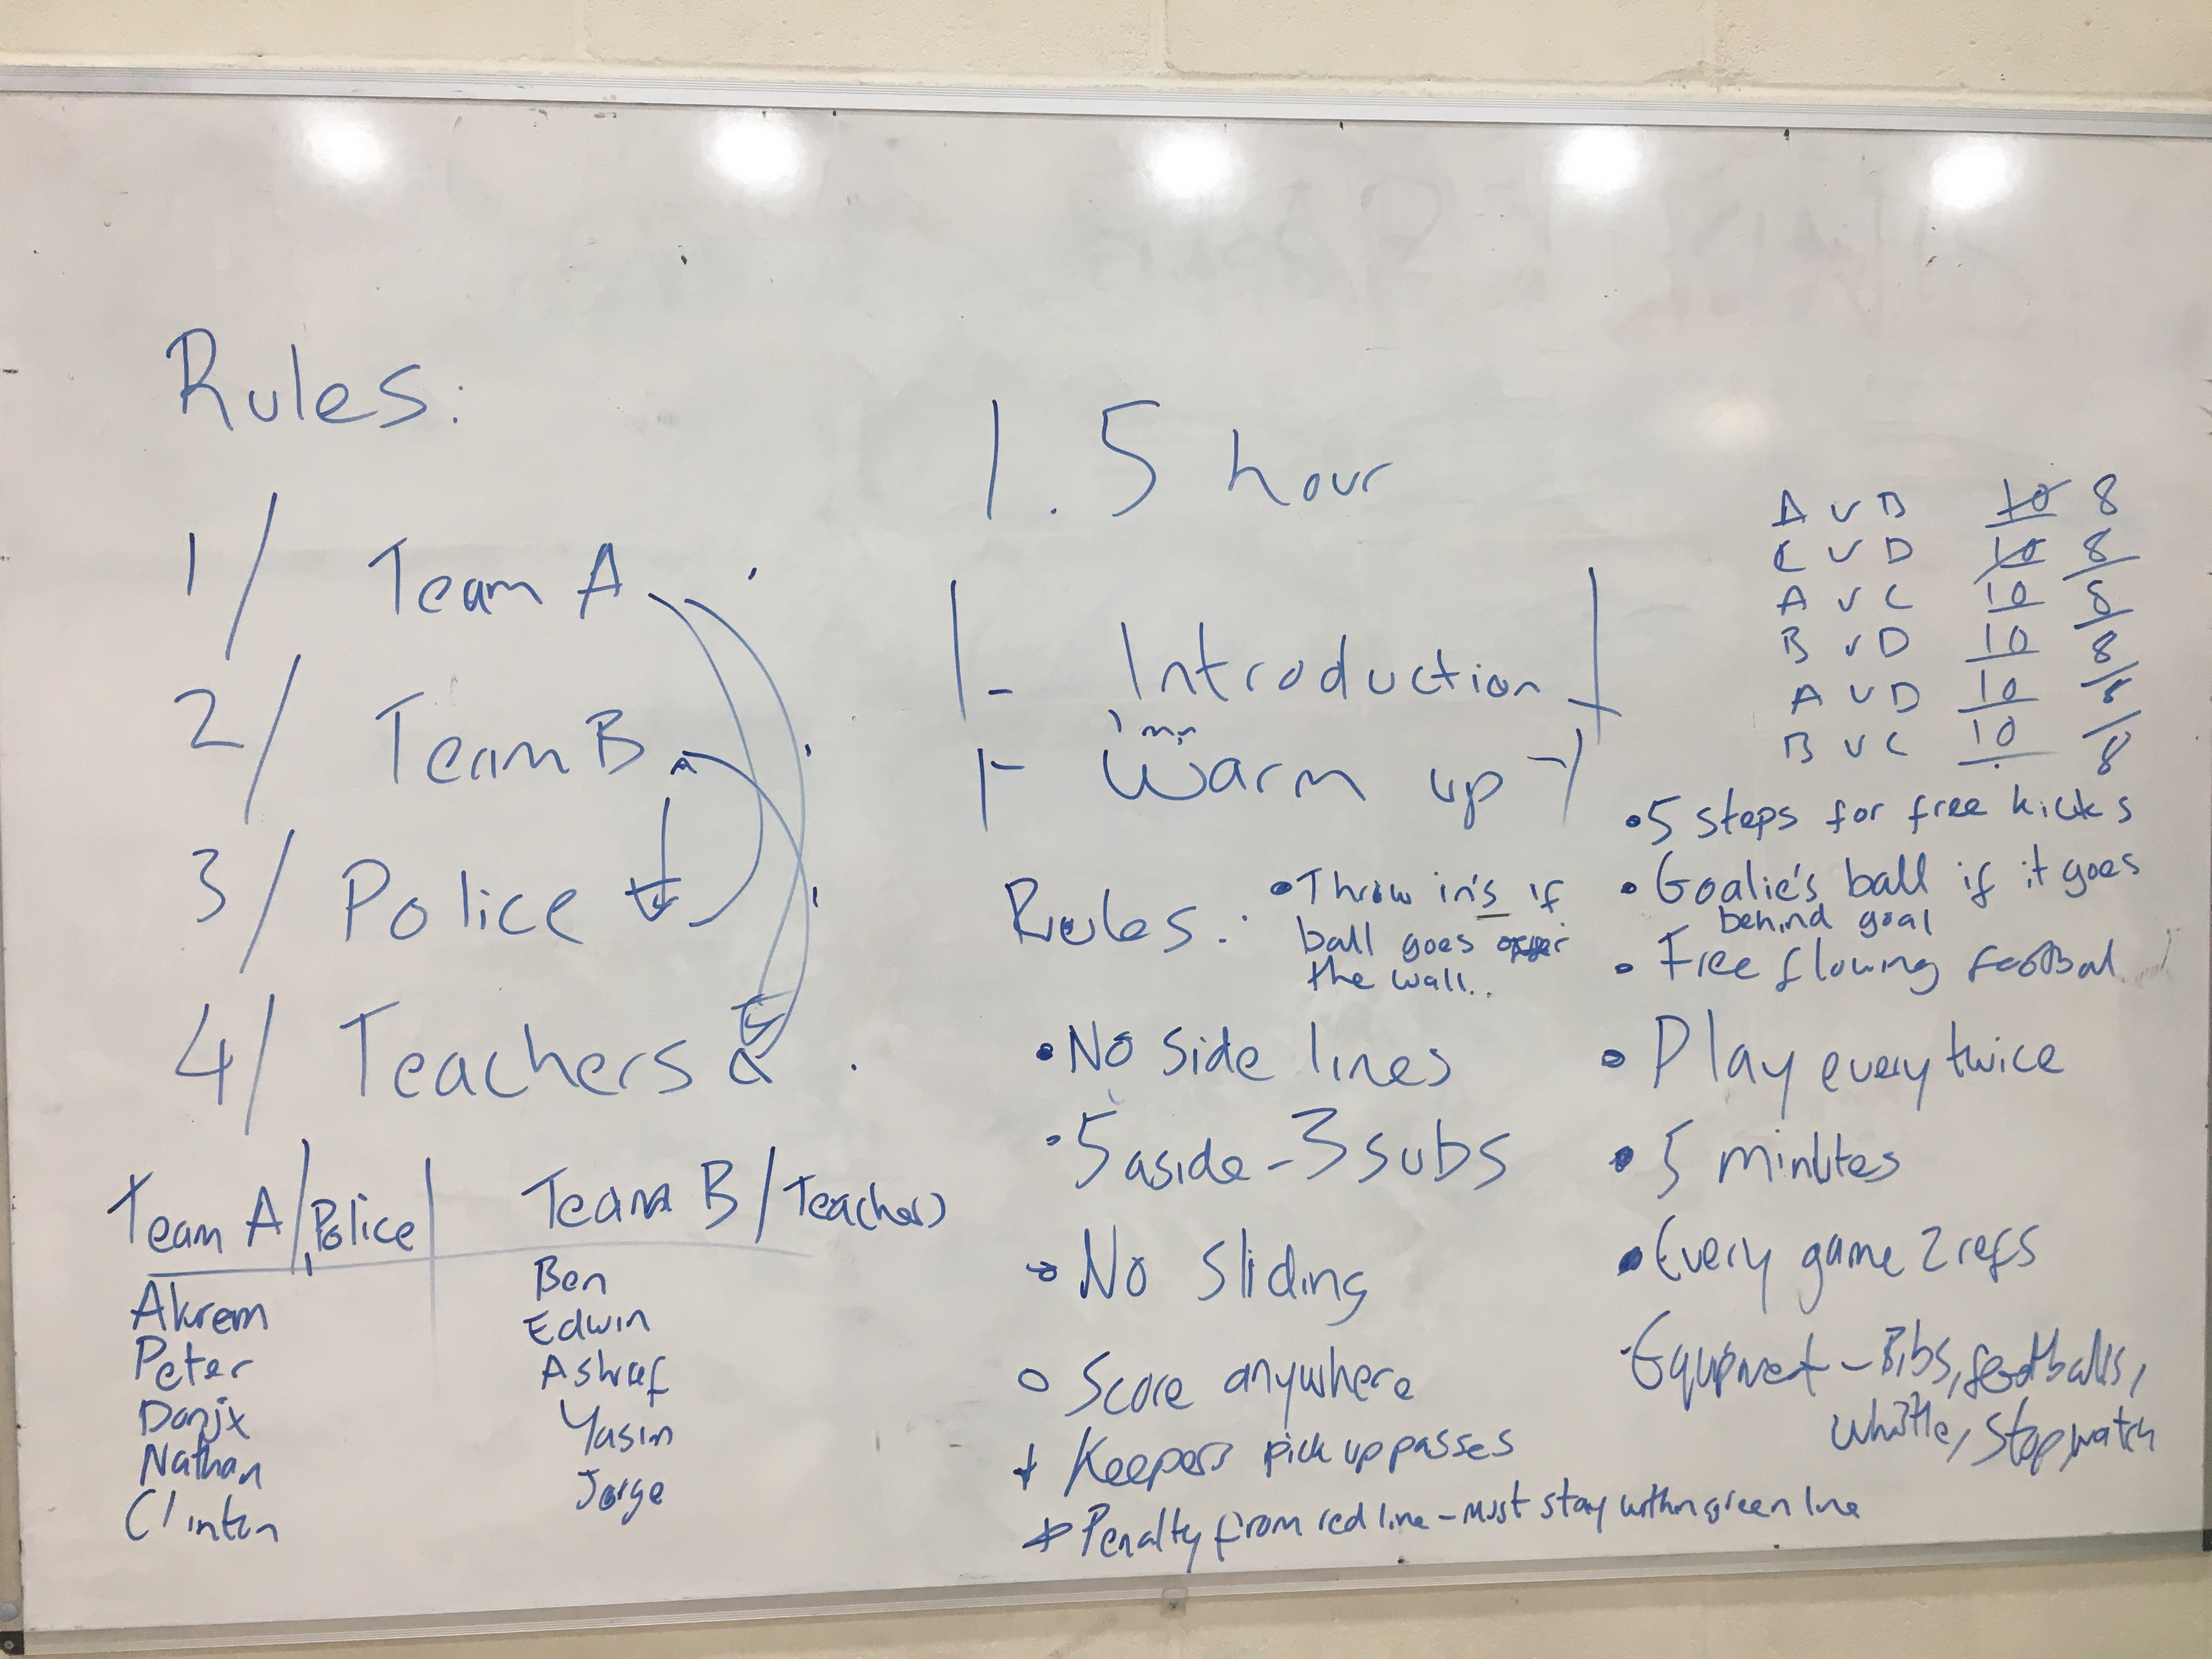 Rules:
1/ Team A
2/ Team B
3/ Police
4/ Teachers
Team A/Police
Akrem
Peter
Nathan
Clinton
Team B/Teachers
Ben
Edwin
Ashraf
Yasin
Jorge
1.5 hour
Introduction
Warm up
Rules:
• Throw in's if
ball goes over
the wall..
• No side lines
• 5 aside - 3 subs
No sliding
Score anywhere
Keepers pick up passes
* Penalty from red line - must stay within green line
A v B 10 8
C v D 10 8
A v C 10 8
B v D 10 8
A v D 10 8
B v C 10 8
• 5 steps for free kicks
• Goalie's ball if it goes
behind goal
• Free flowing football
• Play every twice
• 5 minutes
• Every game 2 refs
Equipmet - Bibs, footballs,
whistle, stopwatch